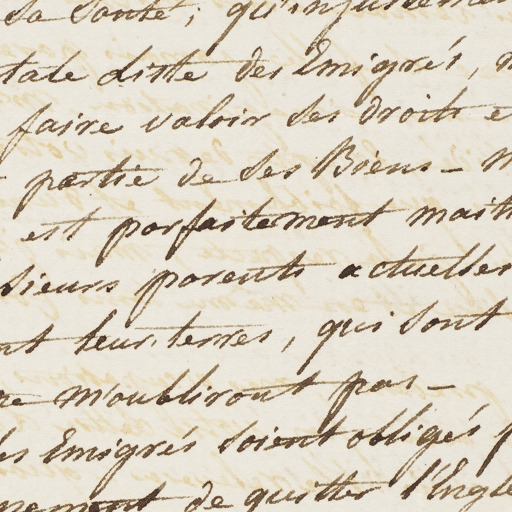 sa santé, qu'injustement
tale Liste des Emigrés,
faire valoir ses droits
partie de ses Biens -
est parfaitement
sieurs parents actuelle
nt leurs terres, qui sont
m'oubliront pas -
Emigrés soient obligés
nement de quitter l'Engle